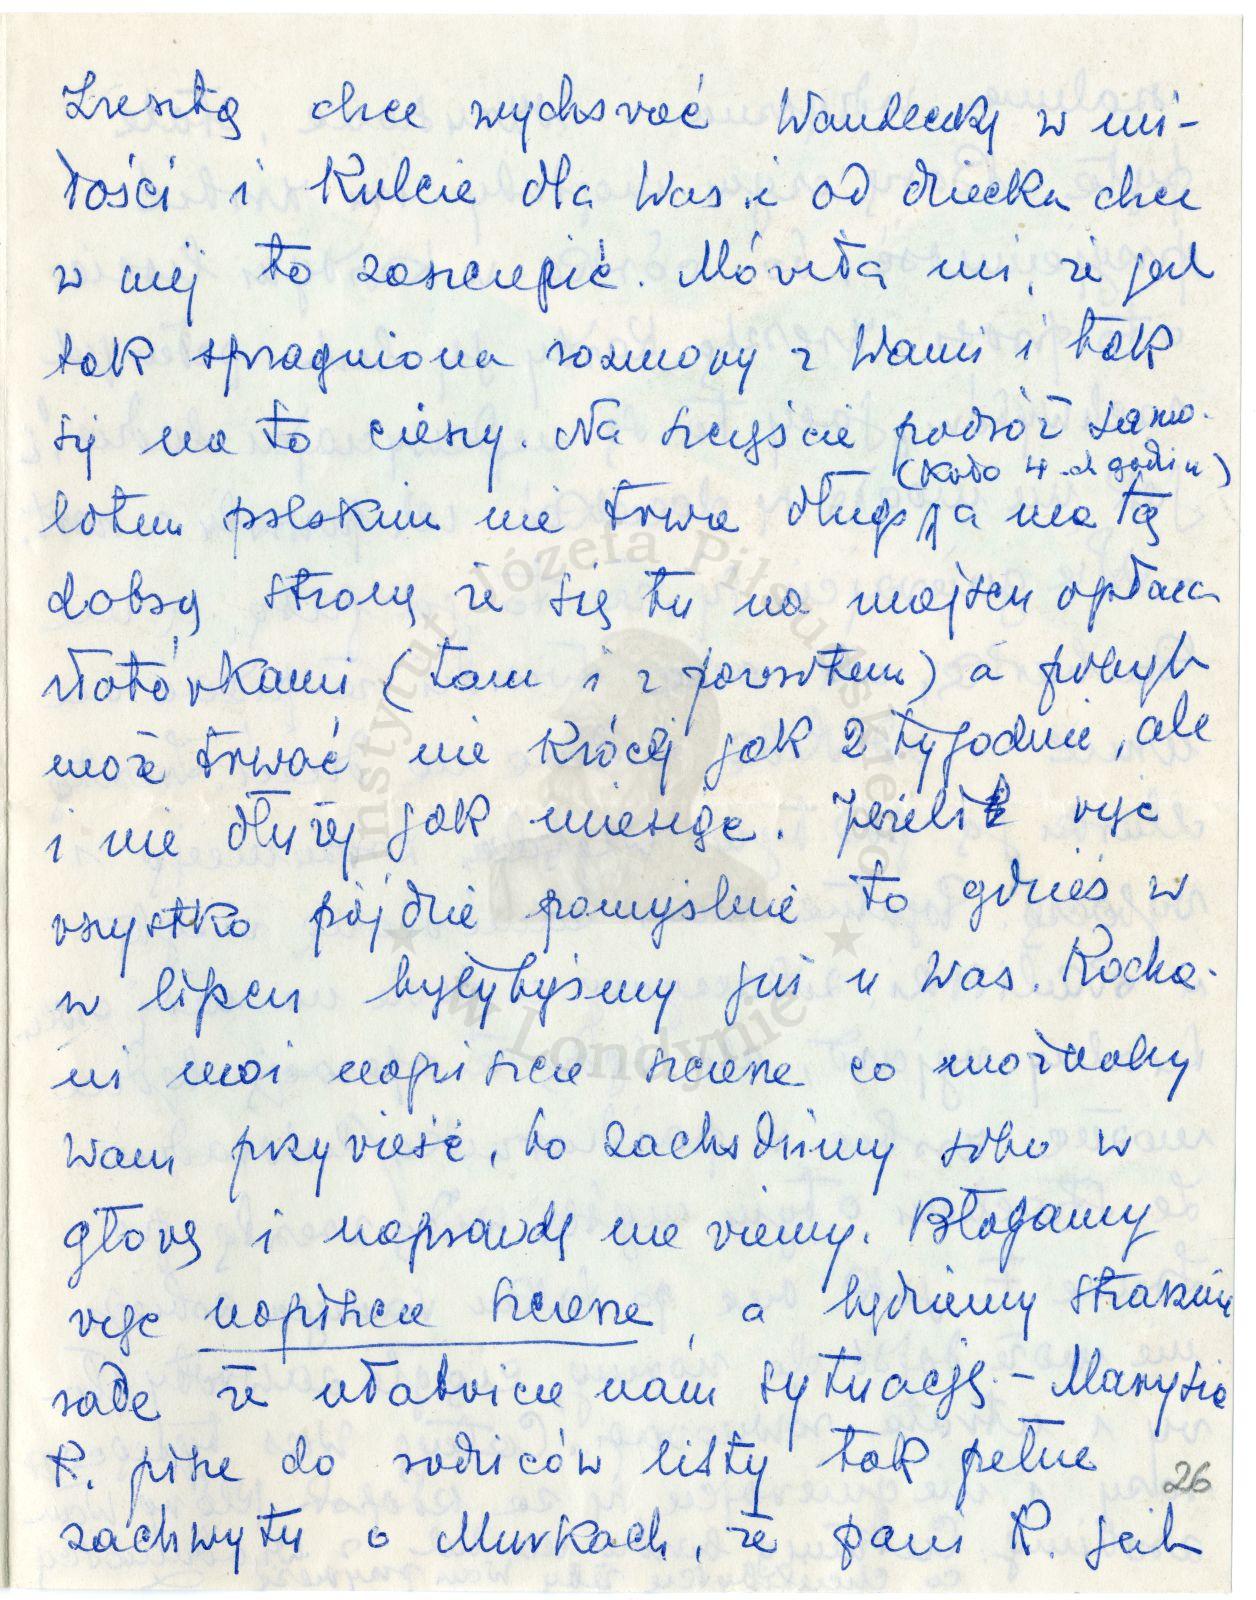 Zresztą chce wychować Wandeczkę w mi-
łości i Kulcie dla Was i od dziecka chce
w niej to zaszczepić. Mówiła mi, że jest
tak spragniona rozmowy z Wami i tak
się na to cieszy. Na szczęście podróż samo-
(koło 4-ch godzin)
lotem polskim nie trwa długo, a ma tę
dobrą stronę że się tu na miejscu opłaca
złotówkami (tam i z powrotem) a pobyt
może trwać nie krócej jak 2 tygodnie, ale
i nie dłużej jak miesiąc. Jeżeli więc
wszystko pójdzie pomyślnie to gdzieś w
w lipcu byłybyśmy już u Was. Kocha-
ni moi napiszcie szczerze co możnaby
Wam przywieść, bo zachodzimy sobie w
głowę i naprawdę nie wiemy. Błagamy
więc napiszcie szczerze, a będziemy strasznie
rade że ułatwicie nam sytuację. - Marysia
R. pisze do rodziców listy tak pełne
zachwytu o Murkach, że pani R. jest
26
Instytut Józefa Piłsudskiego
w Londynie